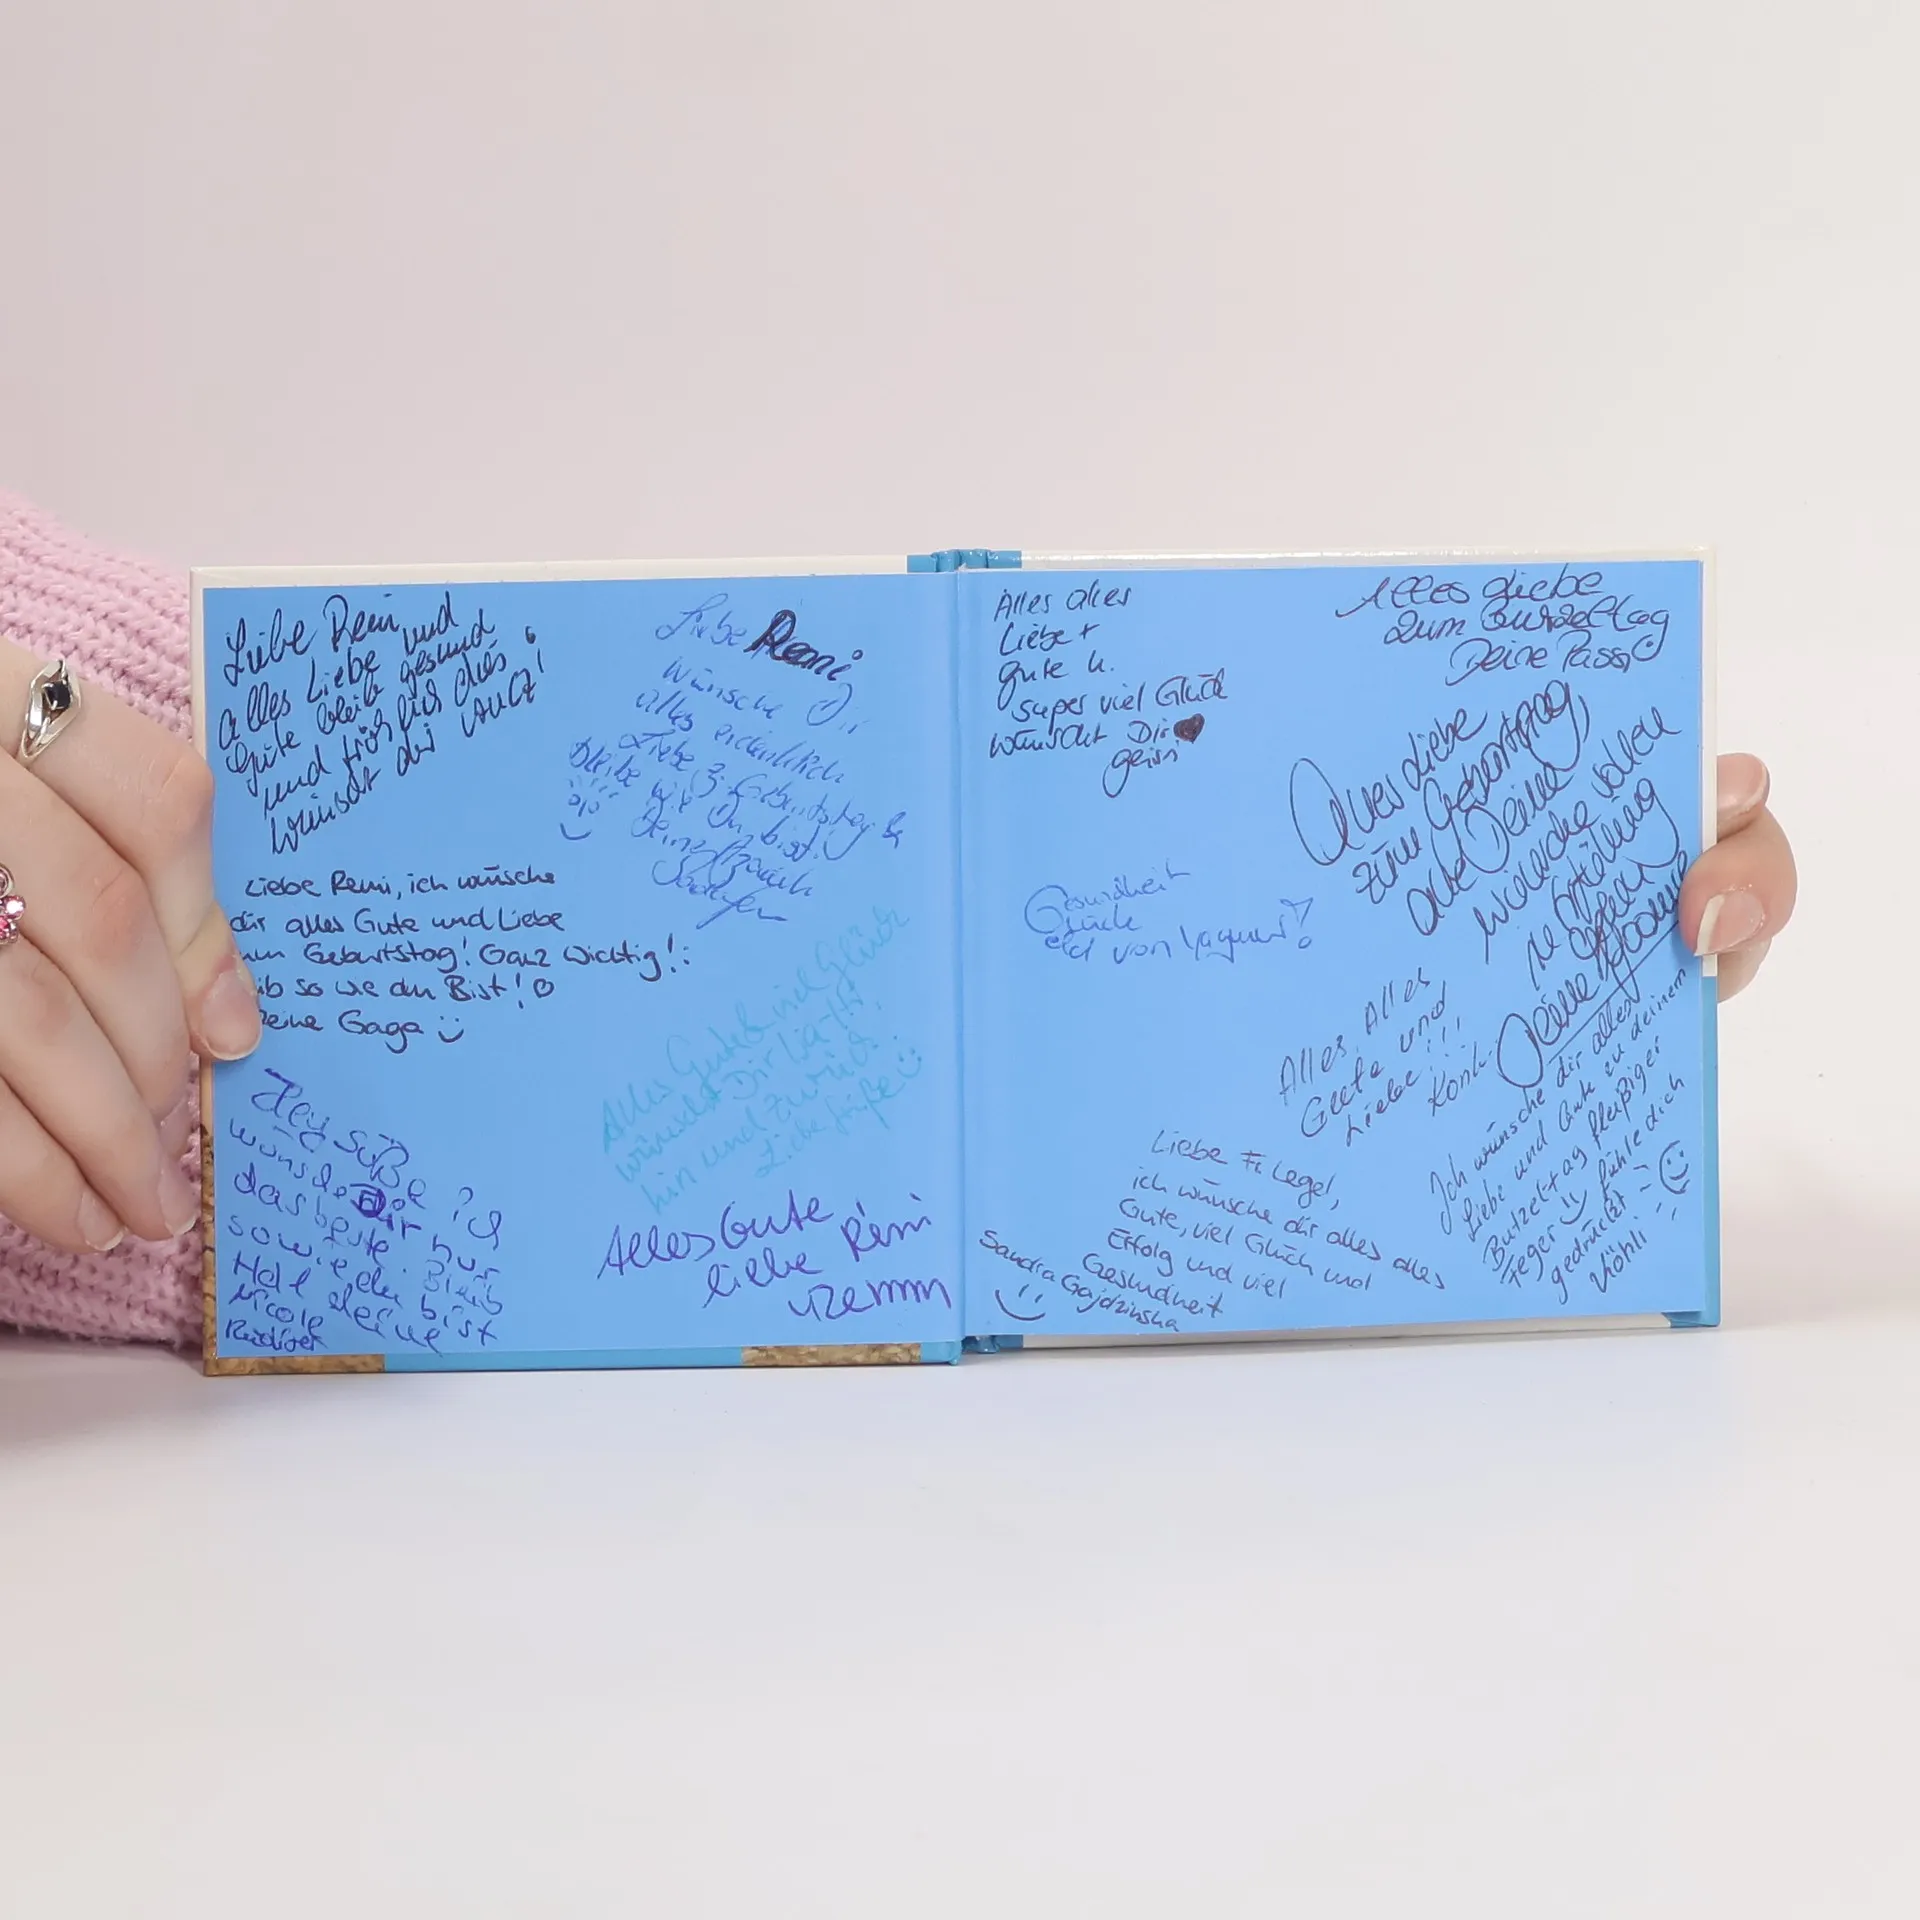 Liebe Remi,
alles Liebe und
Gute bleib gesund
und fröhlich dies
wünscht dir
Liebe Remi
Wünsche Dir
alles erdenklich
Liebe z. Geburtstag
Bleibe wie Du bist!
Liebe Remi, ich wünsche
dir alles Gute und Liebe
um Geburtstag! Ganz wichtig!:
ib so wie du Bist!
Deine Gaga
Alles Gute & viel Glück
wünscht Dir
hin und zurück!
Liebe Grüße
Hey Süße ich
wünsche Dir nur
das beste. Bleib
so wie du bist
Hdl deine
Nicole
Rüdiger
Alles Gute
liebe Remi
Alles alles
Liebe +
gute u.
super viel Glück
wünscht Dir
Alles Liebe
zum Burzeltag
Deine Passi
Alles Liebe
zum Geburtstag,
alle Deine
Wünsche sollen
in Erfüllung
gehen
Deine
Gesundheit
Glück
eld von
Alles Alles
Gute und
Liebe!!!
Liebe
ich wünsche dir alles alles
Gute, viel Glück und
Erfolg und viel
Gesundheit
Sandra Gajdzinska
Ich wünsche dir alles
Liebe und Gute zu deinem
Butzeltag fleißiger
feger fühle dich
gedrückt